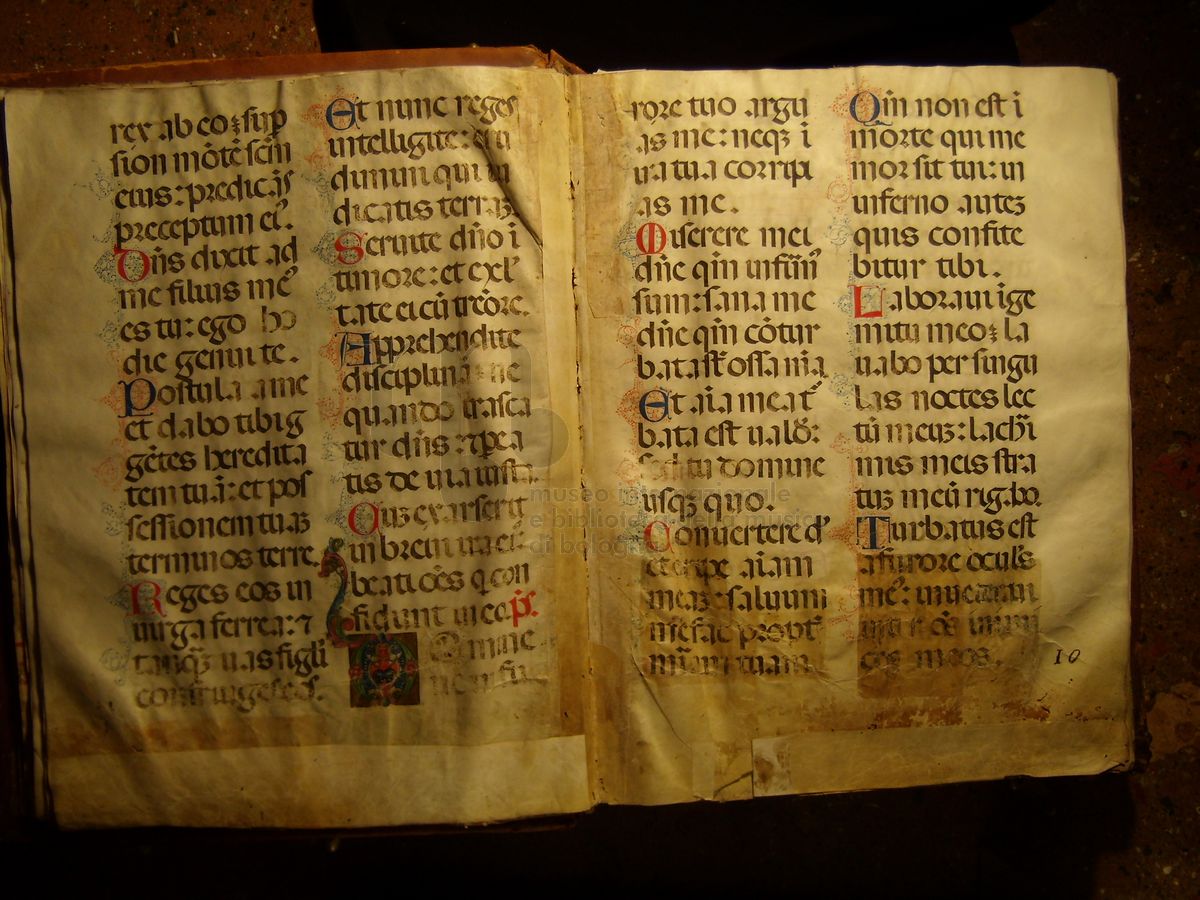 rex ab eo: sup̲
sion mōtē scm̄
eius: predicā̄s
preceptum ei᷒.
Dn̄s dixit ad
me filius me᷒
es tu: ego ho
die genui te.
Postula a me
et dabo tibi g
gētes heredita
tem tuā: et pos
sessionem tuaꝫ
terminos terre.
Reges eos in
uirga ferrea: ⁊
tanqꝫ uas figli
confringes eos.
Et nunc reges
intelligite: eru
dimini qui iu
dicatis terraꝫ.
Seruite dn̄o ī
timore: et exl᷒
tate ei cū treōre.
Apprehendite
disciplinā ne
quando irasca
tur dn̄s: ⁊ pea
tis de uia iusta.
Cuꝫ exarserit
in breui ira ei᷒:
beati oēs q con
fidunt in eo. p̄s.
Domine
ne in fu
rore tuo argu
as me: neqꝫ ī
ira tua corripi
as me.
Miserere mei
dn̄e qm̄ infirm᷒
sum: sana me
dn̄e qm̄ cōtur
bata st̄ ossa m̄a
Et aīa mea t᷒
bata est ualð:
sed tu domine
usqꝫ quo.
Conuertere d᷒
et eripe aīam
meaꝫ: saluum
me fac propt᷒
m̄iam tuam
Qm̄ non est ī
morte qui me
mor sit tui: in
inferno auteꝫ
quis confite
bitur tibi.
Laboraui ī ge
mitu meo: la
uabo per singu
las noctes lec
tū meuꝫ: lachri
mis meis stra
tuꝫ meū rigabo.
Turbatus est
a furore oculꝰs
me᷒: inueteraui
inter oēs inimi
cos meos.
10
museo internazionale
e biblioteca della musica
di bologna